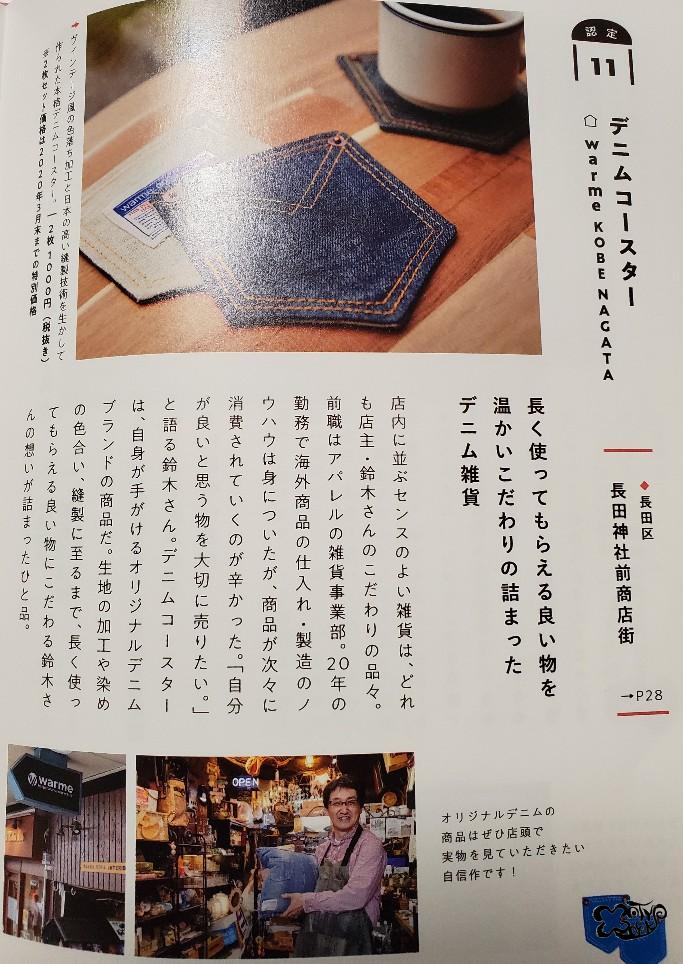 認定
11
デニムコースター
warme KOBE NAGATA
◆長田区
長田神社前商店街
→P28
↑ヴィンテージ風の色落ち加工と日本の高い縫製技術を生かして
作られた本格デニムコースター。―2枚 1000円(税抜き)
※2枚セット価格は2020年3月末までの特別価格
長く使ってもらえる良い物を
温かいこだわりの詰まった
デニム雑貨
店内に並ぶセンスのよい雑貨は、どれ
も店主・鈴木さんのこだわりの品々。
前職はアパレルの雑貨事業部。20年の
勤務で海外商品の仕入れ・製造のノ
ウハウは身についたが、商品が次々に
消費されていくのが辛かった。「自分
が良いと思う物を大切に売りたい。」
と語る鈴木さん。デニムコースター
は、自身が手がけるオリジナルデニム
ブランドの商品だ。生地の加工や染め
の色合い、縫製に至るまで、長く使っ
てもらえる良い物にこだわる鈴木さ
んの想いが詰まったひと品。
warme
OPEN
オリジナルデニムの
商品はぜひ店頭で
実物を見ていただきたい
自信作です!